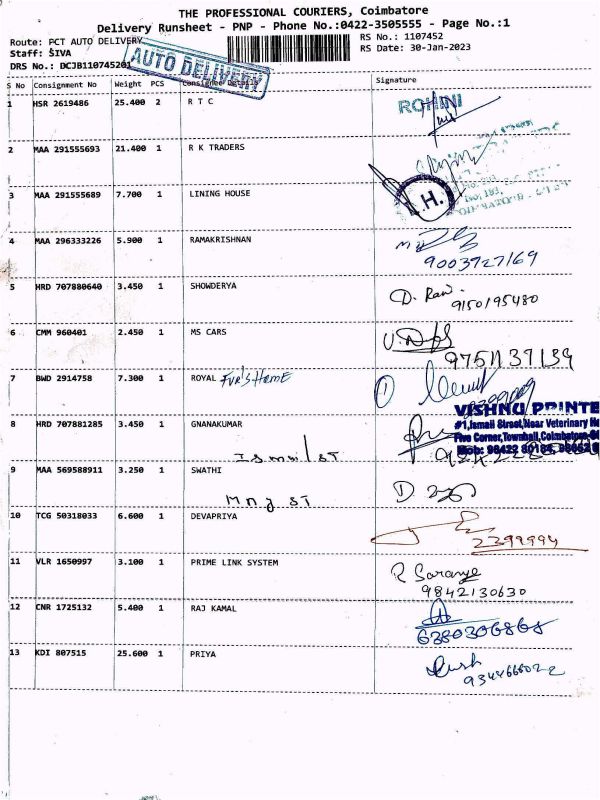 THE PROFESSIONAL COURIERS, Coimbatore
Delivery Runsheet - PNP - Phone No.:0422-3505555 - Page No.:1
Route: PCT AUTO DELIVERY RS No.: 1107452
Staff: SIVA RS Date: 30-Jan-2023
DRS No.: DCJB110745201
AUTO DELIVERY
S No Consignment No Weight PCS Consignee Details Signature
1 HSR 2619486 25.400 2 R T C ROHINI
2 MAA 291555693 21.400 1 R K TRADERS
3 MAA 291555689 7.700 1 LINING HOUSE H.
4 MAA 296333226 5.900 1 RAMAKRISHNAN
9003727169
5 HRD 707880640 3.450 1 SHOWDERYA D. Ravi
9150195480
6 CMM 960401 2.450 1 MS CARS
9751137139
7 BWD 2914758 7.300 1 ROYAL Fur's Home 1
VISHNU PRINTE
8 HRD 707881285 3.450 1 GNANAKUMAR #1,Ismail Street,Near Veterinary
Ismail ST Five Corner,Townhall,Coimbatore
Mob: 98422 80184,
9 MAA 569588911 3.250 1 SWATHI
Mng ST
10 TCG 50318033 6.600 1 DEVAPRIYA
2399994
11 VLR 1650997 3.100 1 PRIME LINK SYSTEM R Saranya
9842130630
12 CNR 1725132 5.400 1 RAJ KAMAL
6380306868
13 KDI 807515 25.600 1 PRIYA
9344666022